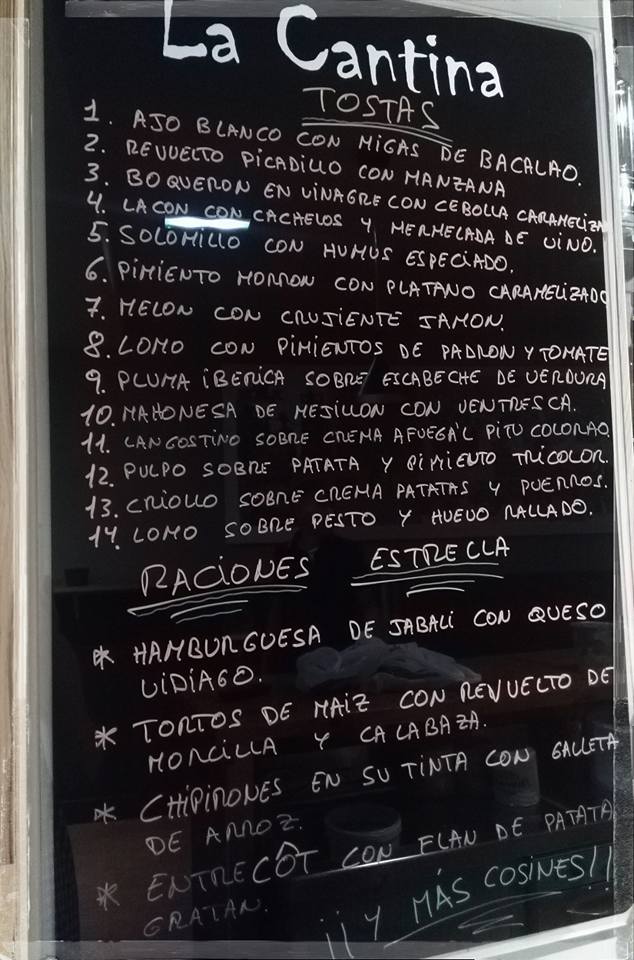 La Cantina
TOSTAS
1. AJO BLANCO CON MIGAS DE BACALAO.
2. REVUELTO PICADILLO CON MANZANA
3. BOQUERON EN VINAGRE CON CEBOLLA CARAMELIZA
4. LACON CON CACHELOS Y MERMELADA DE VINO.
5. SOLOMILLO CON HUMUS ESPECIADO.
6. PIMIENTO MORRON CON PLATANO CARAMELIZADO
7. MELON CON CRUJIENTE JAMON.
8. LOMO CON PIMIENTOS DE PADRON Y TOMATE
9. PLUMA IBERICA SOBRE ESCABECHE DE VERDURA
10. MAHONESA DE MEJILLON CON VENTRESCA.
11. LANGOSTINO SOBRE CREMA AFUEGA'L PITU COLORAO.
12. PULPO SOBRE PATATA Y PIMIENTO TRICOLOR.
13. CRIOLLO SOBRE CREMA PATATAS Y PUERROS.
14. LOMO SOBRE PESTO Y HUEVO RALLADO.
RACIONES ESTRELLA
* HAMBURGUESA DE JABALI CON QUESO
VIDIAGO.
* TORTOS DE MAIZ CON REVUELTO DE
MORCILLA Y CALABAZA.
* CHIPIRONES EN SU TINTA CON GALLETA
DE ARROZ.
* ENTRECÔT CON FLAN DE PATATA
GRATAN.
¡¡Y MÁS COSINES!!